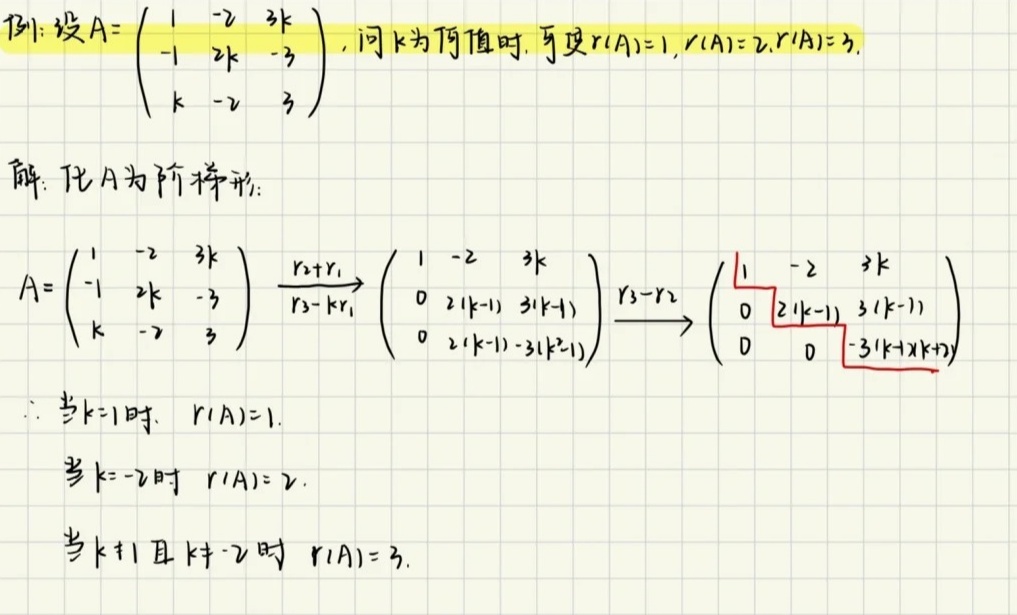 例: 设A= ( 1 -2 3k
-1 2k -3
k -2 3 ) , 问k为何值时, 可使r(A)=1, r(A)=2, r(A)=3.
解: 化A为阶梯形:
A= ( 1 -2 3k
-1 2k -3
k -2 3 ) r₂+r₁ r₃-kr₁ → ( 1 -2 3k
0 2(k-1) 3(k-1)
0 2(k-1) -3(k²-1) ) r₃-r₂ → ( 1 -2 3k
0 2(k-1) 3(k-1)
0 0 -3(k-1)(k+2) )
∴ 当k=1时. r(A)=1.
当k=-2时 r(A)=2.
当k≠1且k≠-2时 r(A)=3.